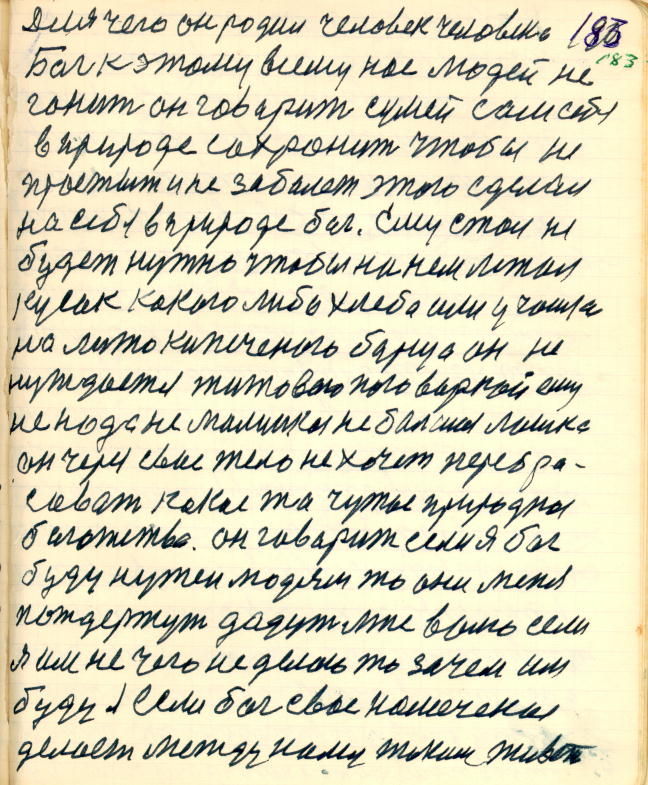 Для чего он родил человек человека 183
183
Бог к этому всему нас людей не
гонит он говарит сумей сам себя
в природе сохронит чтобы не
простыт и не заболет этого сделал
на себя в природе бог. Ему стол не
будет нужно чтобы на нем лежал
кусак какого либо хлеба или у чашка
на лито кипеченого он не
нуждается поговаркой ему
не нада не малинькя не балшая лошка
он через свое тело не хочет перебра-
соват какое та чужое природная
. он говарит если я бог
буду нужен людям то они меня
поддержут дадут мне волю если
я им не чего не делаю то зачем им
буду я Если бог свое намечения
делает между нами таким